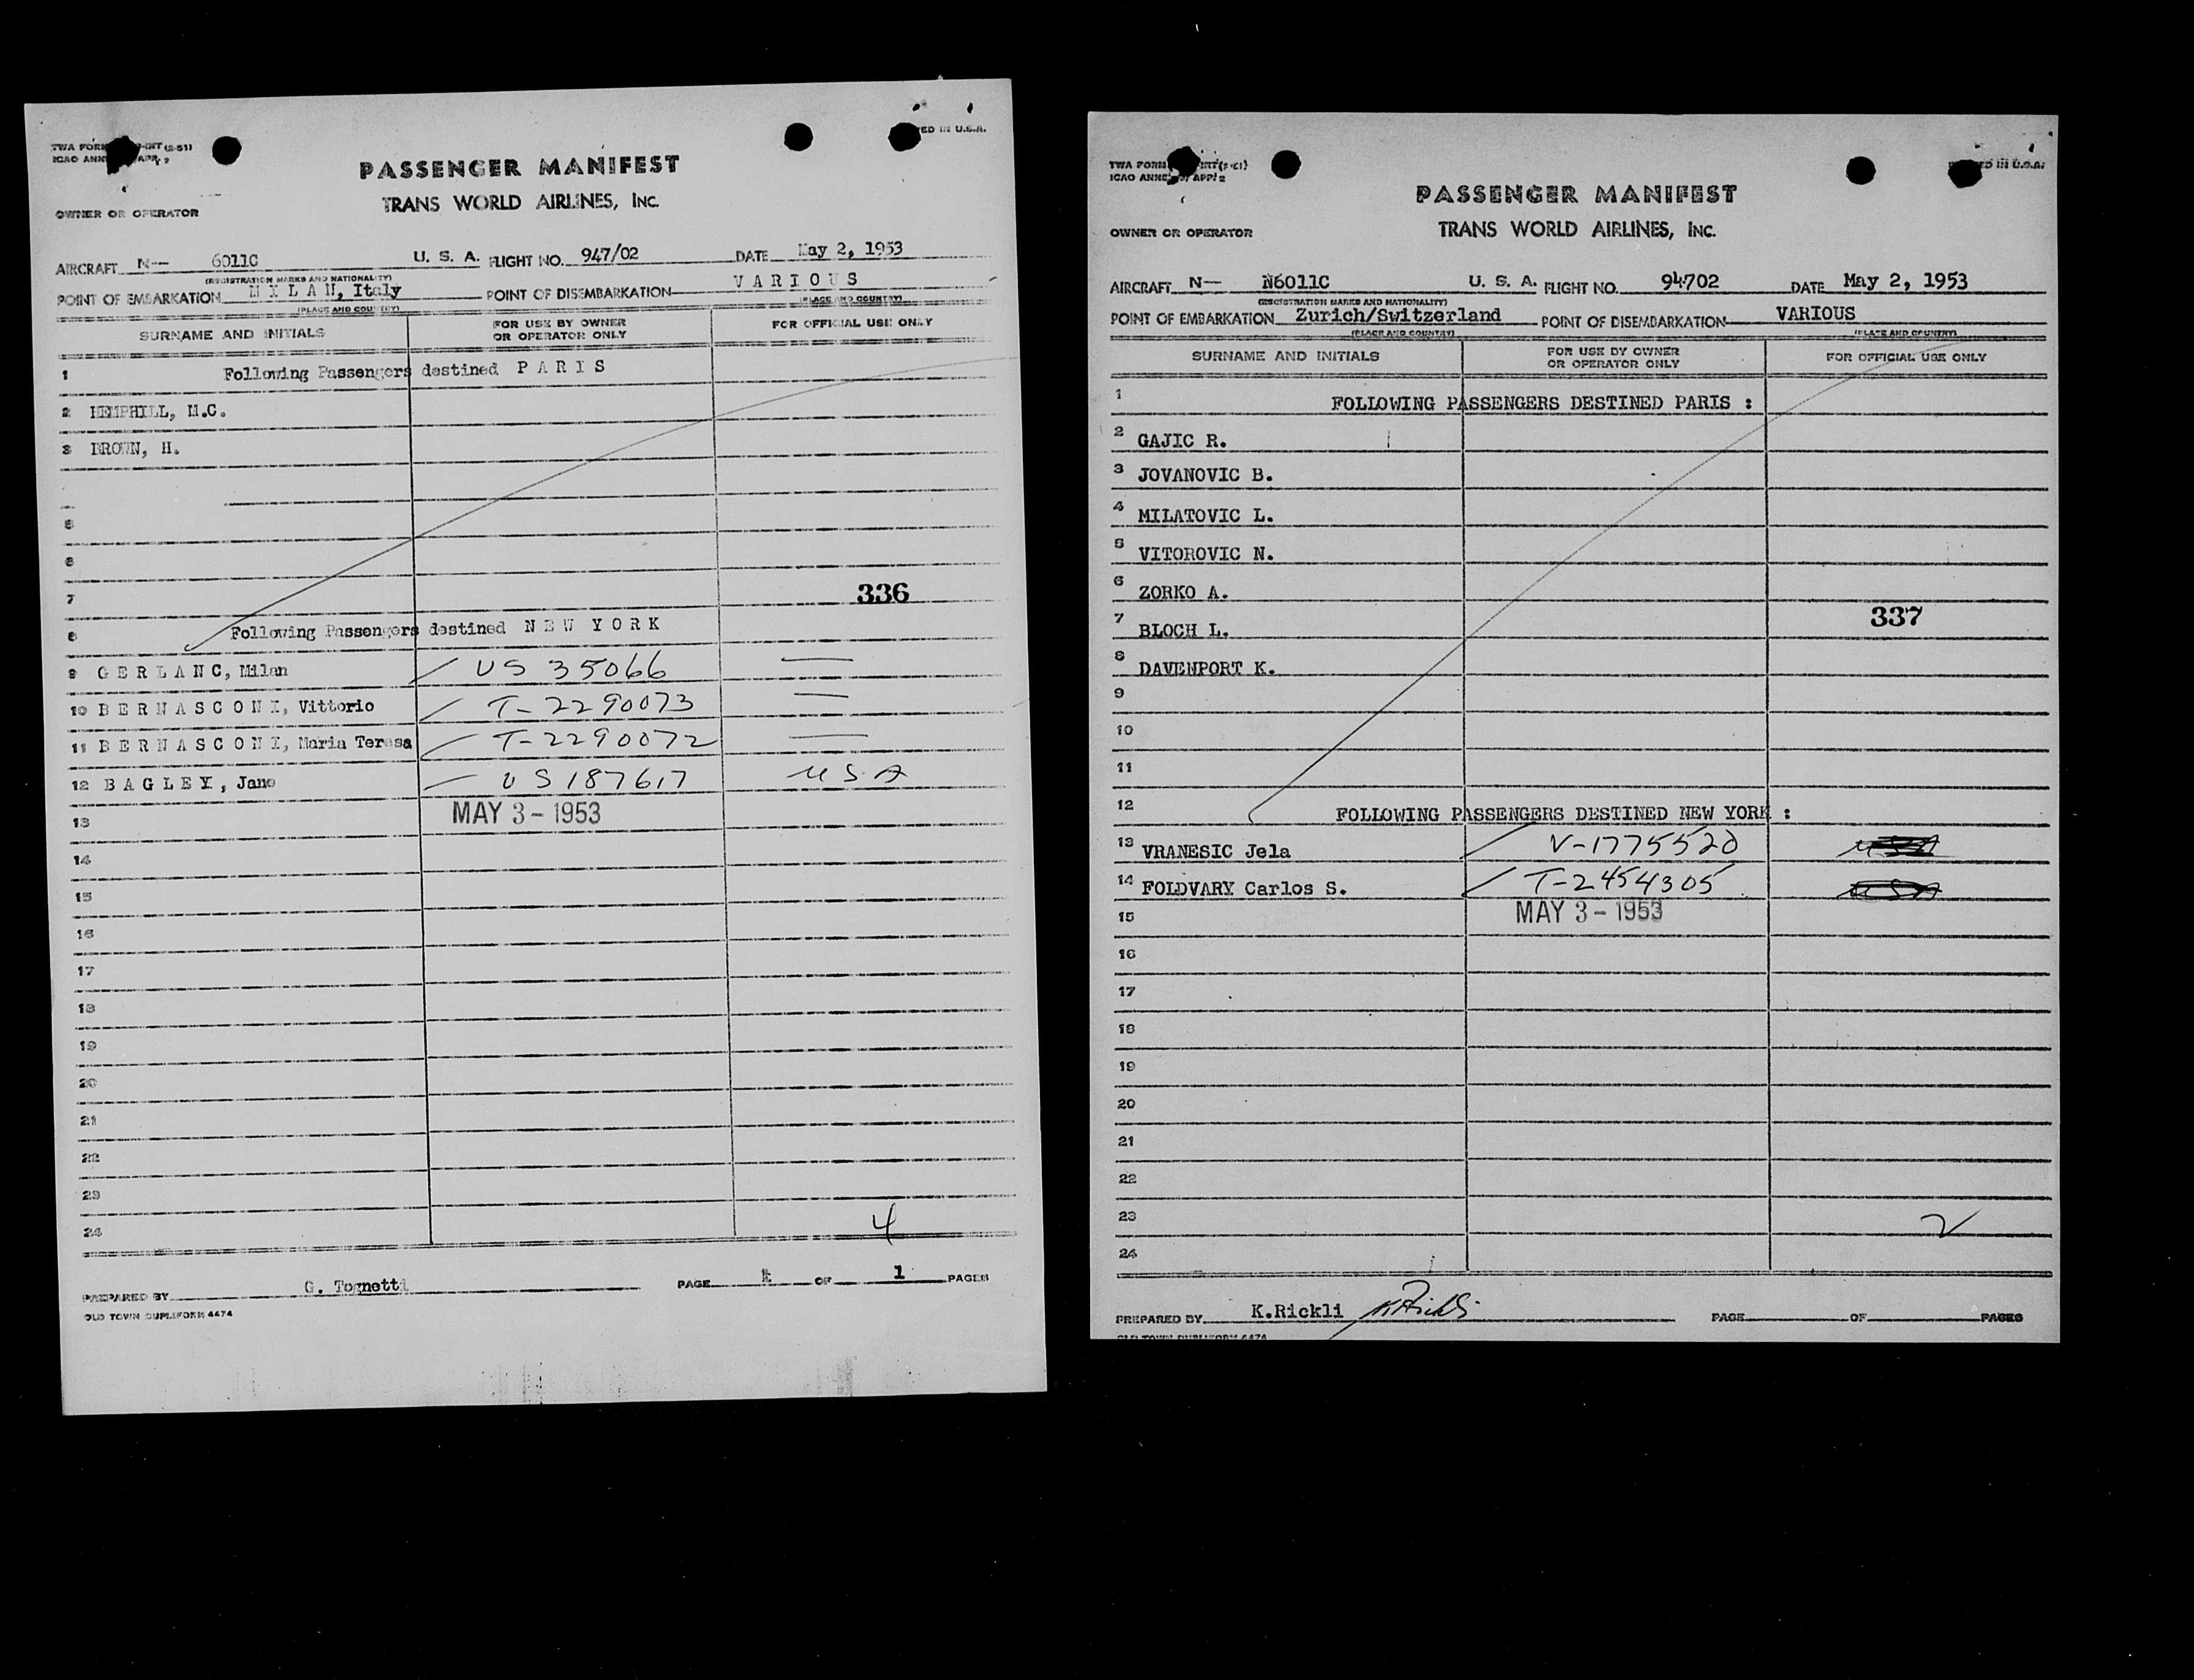 PASSENGER MANIFEST
TRANS WORLD AIRLINES, INC.
OWNER OR OPERATOR
AIRCRAFT N— 6011C U. S. A. FLIGHT NO. 947/02 DATE May 2, 1953
(REGISTRATION MARKS AND NATIONALITY)
POINT OF EMBARKATION M I L A N, Italy POINT OF DISEMBARKATION V A R I O U S
(PLACE AND COUNTRY) (PLACE AND COUNTRY)
SURNAME AND INITIALS FOR USE BY OWNER OR OPERATOR ONLY FOR OFFICIAL USE ONLY
1 Following Passengers destined P A R I S
2 HEMPHILL, M.C.
3 BROWN, H.
6
7 336
8 Following Passengers destined N E W YORK
9 G E R L A N C, Milan US 35066 —
10 B E R N A S C O N I, Vittorio T-2290073 —
11 B E R N A S C O N I, Maria Teresa T-2290072 —
12 B A G L E Y, Jane US 187617 USA
13 MAY 3 - 1953
14
15
16
17
18
19
20
21
22
23
24 4
PREPARED BY G. Tognetti PAGE OF 1 PAGES
OLD TOWN DUPLIFORM 4474
PASSENGER MANIFEST
TRANS WORLD AIRLINES, INC.
OWNER OR OPERATOR
AIRCRAFT N— N6011C U. S. A. FLIGHT NO. 94702 DATE May 2, 1953
(REGISTRATION MARKS AND NATIONALITY)
POINT OF EMBARKATION Zurich/Switzerland POINT OF DISEMBARKATION VARIOUS
(PLACE AND COUNTRY) (PLACE AND COUNTRY)
SURNAME AND INITIALS FOR USE BY OWNER OR OPERATOR ONLY FOR OFFICIAL USE ONLY
1 FOLLOWING PASSENGERS DESTINED PARIS :
2 GAJIC R.
3 JOVANOVIC B.
4 MILATOVIC L.
5 VITOROVIC N.
6 ZORKO A.
7 BLOCH L. 337
8 DAVENPORT K.
9
10
11
12 FOLLOWING PASSENGERS DESTINED NEW YORK :
13 VRANESIC Jela V-1775520
14 FOLDVARY Carlos S. T-2454305
15 MAY 3 - 1953
16
17
18
19
20
21
22
23 2
24
PREPARED BY K.Rickli K Rickli PAGE OF PAGES
OLD TOWN DUPLIFORM 4474